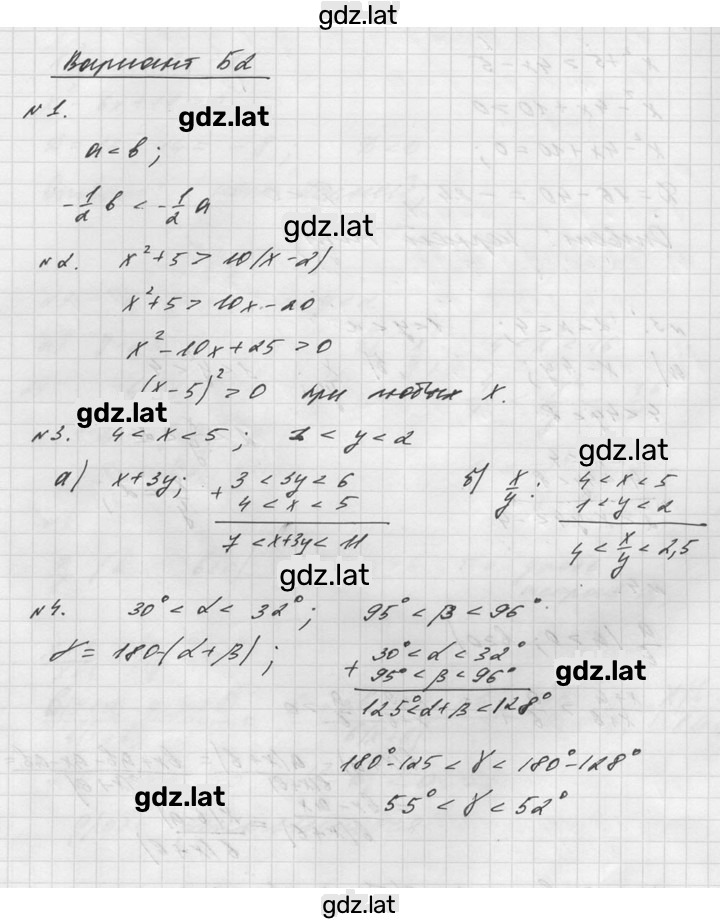 gdz.lat
Вариант Б2
№1.
gdz.lat
a < b;
-1/2 b < -1/2 a
gdz.lat
№2. x² + 5 > 10(x - 2)
x² + 5 > 10x - 20
x² - 10x + 25 > 0
(x - 5)² > 0 при любых x.
gdz.lat
№3. 4 < x < 5; 1 < y < 2
gdz.lat
а) x + 3y; + 3 < 3y < 6
4 < x < 5
7 < x + 3y < 11
б) x/y: 4 < x < 5
1 < y < 2
4 < x/y < 2,5
gdz.lat
№4. 30° < α < 32°; 95° < β < 96°
γ = 180 - (α + β); + 30° < α < 32°
95° < β < 96°
gdz.lat
125° < α + β < 128°
180° - 125 < γ < 180° - 128°
gdz.lat
55° < γ < 52°
gdz.lat